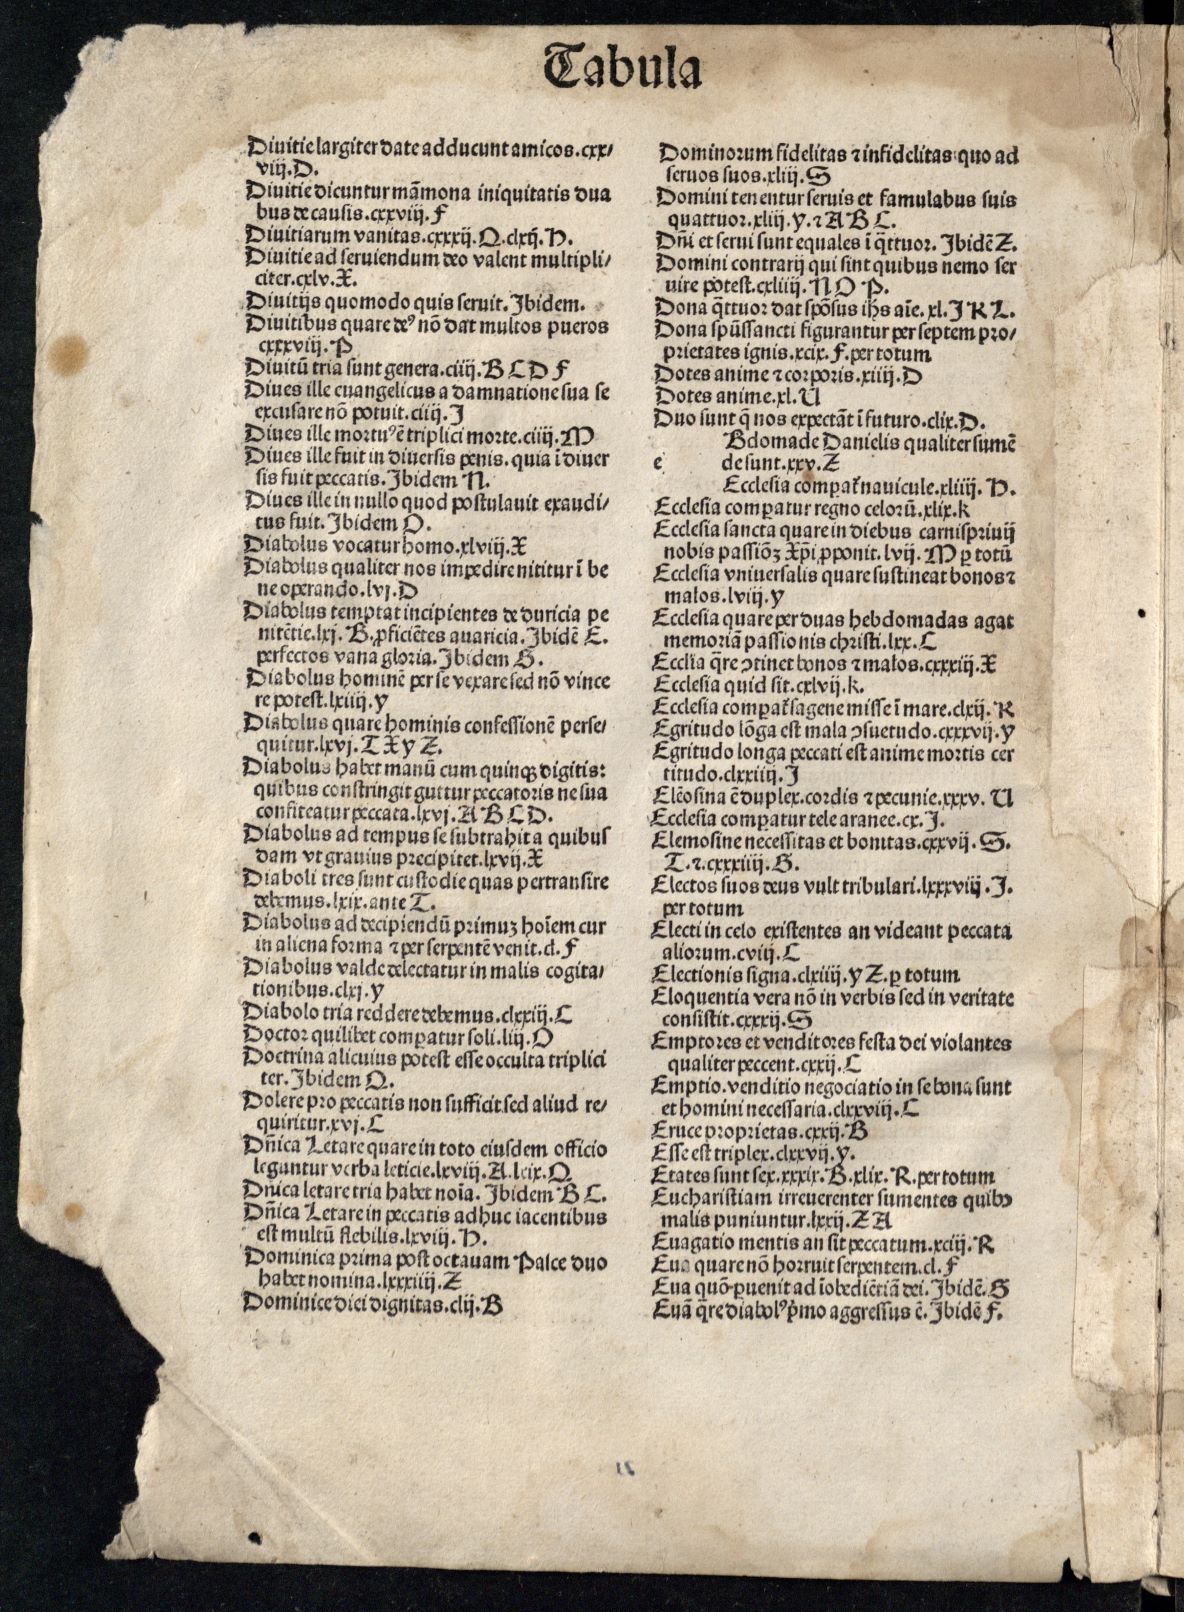 Tabula
Diuitie largiter date adducunt amicos.cxx/
viij.D.
Diuitie dicuntur mãmona iniquitatis dua
bus de causis.cxxviij.F
Diuitiarum vanitas.cxxxij.Q.clxij.H.
Diuitie ad seruiendum deo valent multipli/
citer.cxlv.X.
Diuitijs quomodo quis seruit.Ibidem.
Diuitibus quare deꝰ nõ dat multos pueros
cxxxviij.P
Diuitũ tria sunt genera.ciiij.B C D F
Diues ille euangelicus a damnatione sua se
excusare nõ potuit.ciiij.I
Diues ille mortuꝰ ẽ triplici morte.ciiij.M
Diues ille fuit in diuersis penis.quia ĩ diuer
sis fuit peccatis.Ibidem N.
Diues ille in nullo quod postulauit exaudi/
tus fuit.Ibidem O.
Diabolus vocatur homo.xlviij.X
Diabolus qualiter nos impedire nititur ĩ be
ne operando.lvj.D
Diabolus temptat incipientes de duricia pe
nitẽtie.lxj.B.ꝓficiẽtes auaricia.Ibidẽ E.
perfectos vana gloria.Ibidem G.
Diabolus hominẽ per se vexare sed nõ vince
re potest.lxiiij.y
Diabolus quare hominis confessionẽ perse/
quitur.lxvj.T X y Z.
Diabolus habet manũ cum quinqꝫ digitis:
quibus constringit guttur peccatoris ne sua
confiteatur peccata.lxvj.A B C D.
Diabolus ad tempus se subtrahit a quibus
dam vt grauius precipitet.lxvij.X
Diaboli tres sunt custodie quas pertransire
debemus.lxix.ante T.
Diabolus ad decipiendũ primuꝫ hoĩem cur
in aliena forma ⁊ per serpentẽ venit.cl.F
Diabolus valde delectatur in malis cogita/
tionibus.clxj.y
Diabolo tria reddere debemus.clxxiij.C
Doctor quilibet comꝑatur soli.liij.O
Doctrina alicuius potest esse occulta triplici
ter.Ibidem Q.
Dolere pro peccatis non sufficit sed aliud re/
quiritur.xvj.C
Dñica Letare quare in toto eiusdem officio
leguntur verba leticie.lxviij.A.lxix.Q.
Dñica letare tria habet noĩa.Ibidem B C.
Dñica Letare in peccatis adhuc iacentibus
est multũ flebilis.lxviij.H.
Dominica prima post octauam Pasce duo
habet nomina.lxxxiiij.Z
Dominice diei dignitas.clij.B
Dominorum fidelitas ⁊ infidelitas quo ad
seruos suos.xliij.S
Domini tenentur seruis et famulabus suis
quattuor.xliij.y.⁊ A B C.
Dñi et serui sunt equales ĩ q̃ttuor.Ibidẽ Z.
Domini contrarij qui sint quibus nemo ser
uire potest.cxliiij.N O P.
Dona q̃ttuor dat spõsus ihs aĩe.xl.I K L.
Dona spũssancti figurantur per septem pro/
prietates ignis.xcix.F.per totum
Dotes anime ⁊ corporis.xiiij.D
Dotes anime.xl.U
Duo sunt q̃ nos expectãt ĩ futuro.clix.D.
Bdomade Danielis qualiter sumẽ
e de sunt.xxv.Z
Ecclesia comꝑat̃ nauicule.xliiij.H.
Ecclesia comꝑatur regno celorũ.xlix.k
Ecclesia sancta quare in diebus carnispriuij
nobis passiõꝫ Xp̃i ꝓponit.lvij.M ꝑ totũ
Ecclesia vniuersalis quare sustineat bonos ⁊
malos.lviij.y
Ecclesia quare per duas hebdomadas agat
memoriã passionis christi.lxx.C
Ecclĩa q̃re ↄtinet bonos ⁊ malos.cxxxiij.X
Ecclesia quid sit.cxlvij.k.
Ecclesia comꝑat̃ sagene misse ĩ mare.clxij.R
Egritudo lõga est mala ↄsuetudo.cxxxvij.y
Egritudo longa peccati est anime mortis cer
titudo.clxxiiij.I
Elẽosina ẽ duplex.cordis ⁊ pecunie.xxxv.U
Ecclesia comꝑatur tele aranee.cx.I.
Elemosine necessitas et bonitas.cxxvij.S.
T.⁊.cxxxiiij.G.
Electos suos deus vult tribulari.lxxxviij.I.
per totum
Electi in celo existentes an videant peccata
aliorum.cviij.C
Electionis signa.clxiiij.y Z.ꝑ totum
Eloquentia vera nõ in verbis sed in veritate
consistit.cxxxij.S
Emptores et venditores festa dei violantes
qualiter peccent.cxxij.C
Emptio.venditio negociatio in se bona sunt
et homini necessaria.clxxviij.C
Eruce proprietas.cxxij.B
Esse est triplex.clxxvij.y.
Etates sunt sex.xxxix.B.xlix.R.per totum
Eucharistiam irreuerenter sumentes quibꝰ
malis puniuntur.lxxij.Z A
Euagatio mentis an sit peccatum.xciij.R
Eua quare nõ horruit serpentem.cl.F
Eua quõ ꝑuenit ad ĩobediẽtiã dei.Ibidẽ.G
Euã q̃re diabolꝰ p̃mo aggressus ẽ.Ibidẽ F.